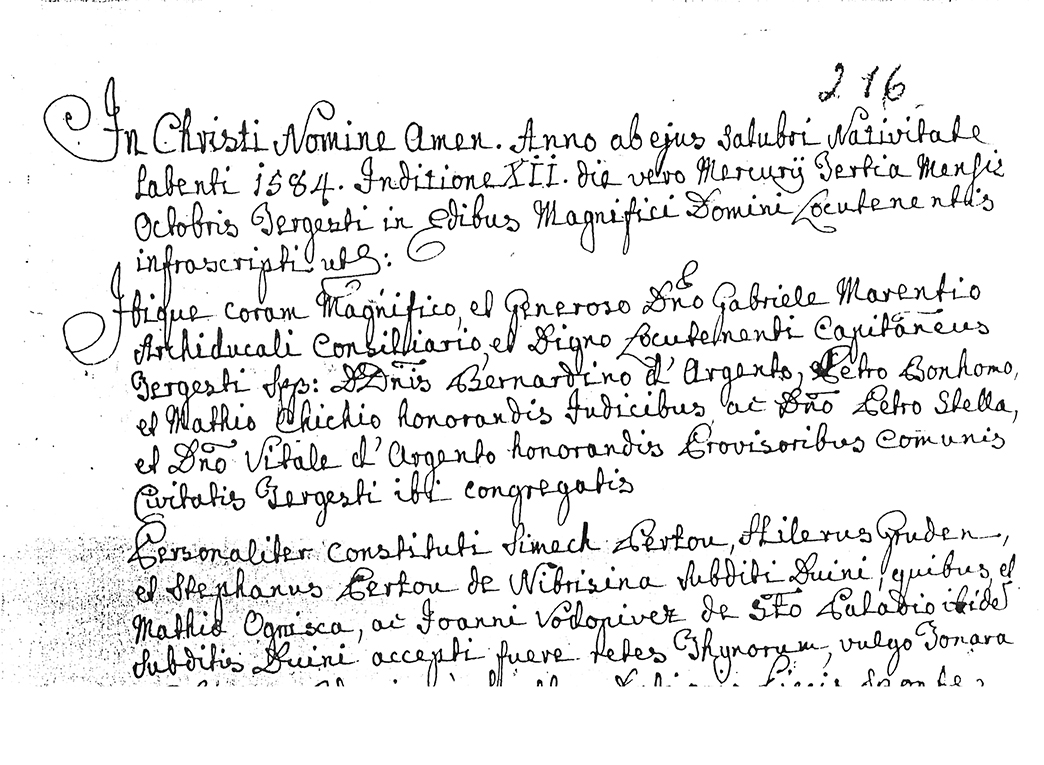 216
In Christi Nomine Amen. Anno ab ejus salubri Nativitate
labenti 1584. Inditione XII. die vero Mercurij Tertia Mensis
Octobris Tergesti in Edibus Magnifici Domini Locutenentis
infrascripti
Ibique coram Magnifico, et Generoso Dno Gabriele Marentio
Archiducali Consilliario, et Digno Locutenenti Capitaneus
Tergesti Spp: DDnis Bernardino d'Argento, Petro Bonhomo,
et Mathio Chichio honorandis Judicibus, ac Dno Petro Stella,
et Dno Vitale d'Argento honorandis Provisoribus Comunis
Civitatis Tergesti ibi congregatis
Personaliter Constituti Simech Pertou, Stilerus Gruden,
et Stephanus Pertou de Nibrisina Subditi Duini, quibus, et
Mathid Ognisca, ac Joanni Vodopivez de Sto Paladio ibide
Subditis Duini accepti fuere retes Thynorum, vulgo Tonara